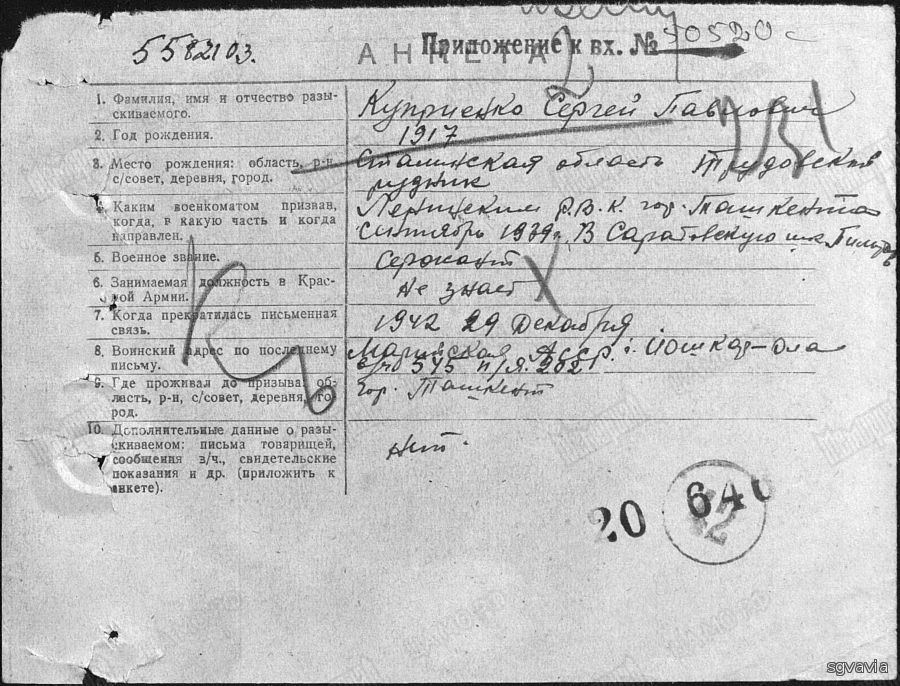 5582103.
АНКЕТА
Приложение к вх. № 70520с
1. Фамилия, имя и отчество разы-
скиваемого.
Куприенко Сергей Павлович
2. Год рождения.
1917
3. Место рождения: область, р-н,
с/совет, деревня, город.
Сталинская область Трудовской
рудник
4. Каким военкоматом призван,
когда, в какую часть и когда
направлен.
Ленинским Р.В.К. гор. Ташкента
Сентябрь 1939г. В Саратовскую шк. Пилотов
5. Военное звание.
Сержант
6. Занимаемая должность в Крас-
ной Армии.
Не знает
7. Когда прекратилась письменная
связь.
1942 29 Декабря
8. Воинский адрес по последнему
письму.
Марийская АССР. г. Йошкар-Ола
545 п/я.
9. Где проживал до призыва: об-
ласть, р-н, с/совет, деревня, го-
род.
Гор. Ташкент
10. Дополнительные данные о разы-
скиваемом: письма товарищей,
сообщения в/ч., свидетельские
показания и др. (приложить к
анкете).
нет.
20 640
12
sgvavia